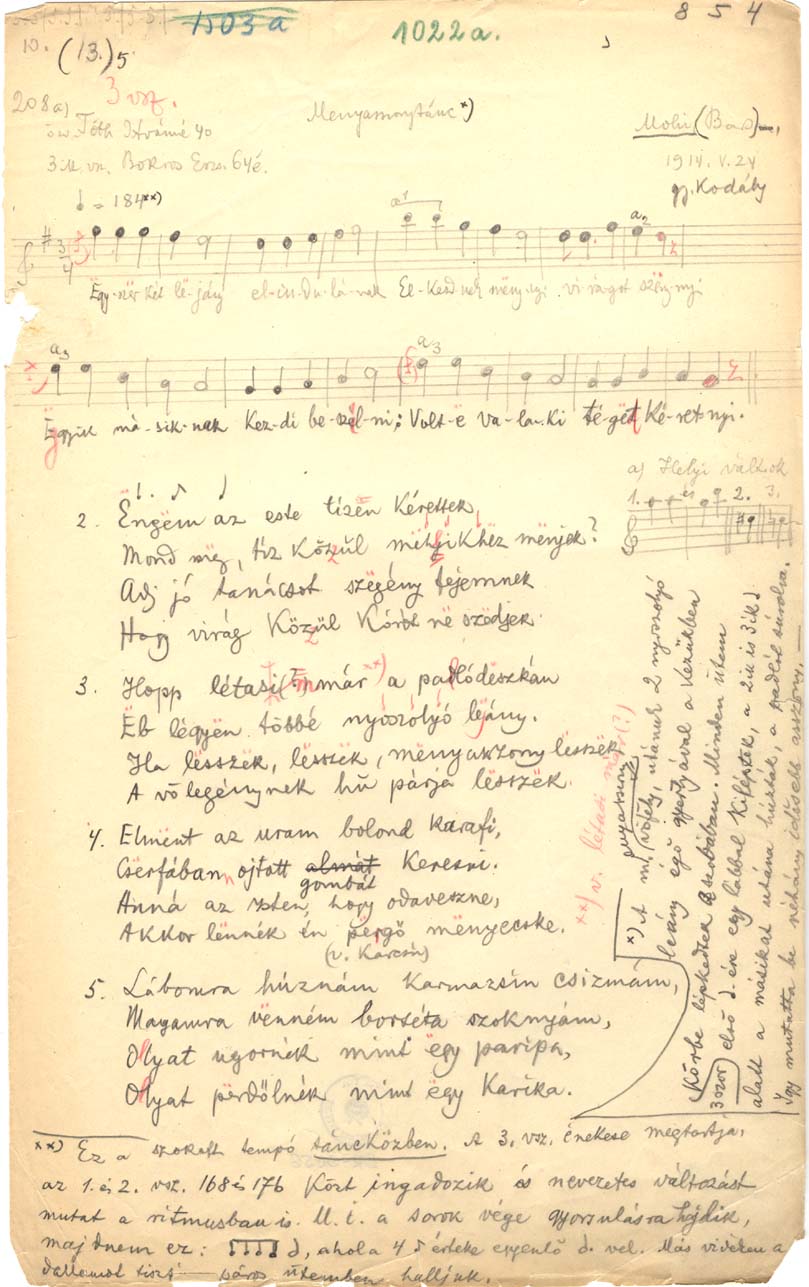 1503a
1022a.
854
10.
(13.)5
3 vsz.
208a)
özv. Tóth Istvánné 40
3ik vsz. Bokros Erzs. 64é.
Menyasszonytánc x)
Mohi (Bars)
1914. V. 24
gy. Kodály
= 184 xx)
3/4
a1
a2
Ëgy-szër két lë-jány el-in-du-lá-nak El-kezd-nek mëny-nyi vi-rá-got szëny-nyi
a3
a3
Ëgyik má-sik-nak kez-di be-szél-ni: Volt-ë va-la-ki té-gët ké-ret-nyi.
a) Helyi vált.ok
1. és 2. 3.
2. Ëngëm az este tizën kérettek
Mond mëg, tíz közzűl mëllyikhëz mënjek?
Adj jó tanácsot szëgény fejemnek
Hogy virág közzűl kórót në szëdjek.
3. Hopp létasi(?)m már xx) a padlódëszkán
Ëb légyën többé nyoszólyó lëjány.
Ha lësszëk, lësszëk, mënyasszony lësszëk
A vőlegénynek hű párja lësszëk.
xx) v. létasi már(?)
4. Elmënt az uram bolond karafi,
Csërfában ojtott almát keresni.
gombát
Anná az Isten, hogy odaveszne,
Akkor lënnék én përgő mënyecske.
(v. karcsú)
5. Lábomra húznám karmazsin csizmám,
Magamra vënném borséta szoknyám,
Olyat ugornék mint ëgy paripa,
Olyat përdölnék mint ëgy karika.
x) A m. vőfély, utánuk 2 nyoszolyó
leány égő gyertyával a kezükben
Körbe lépkedtek a szobában. Minden ütem
3szor
első d.-ére egy lábbal kiléptek, a 2ik és 3ik d.
alatt a másikat utána húzták, a padlót súrolva.
Így mutatta be néhány idősebb asszony.
xx) Ez a szokott tempó táncközben. A 3. vsz. énekese megtartja,
az 1. és 2. vsz. 168 és 176 közt ingadozik és nevezetes változást
mutat a ritmusban is. U. i. a sorok vége gyorsulásra hajlik,
majdnem ez: , ahol a 4 értéke egyenlő d. vel. Más vidéken a
dallamot tiszt páros ütemben halljuk.